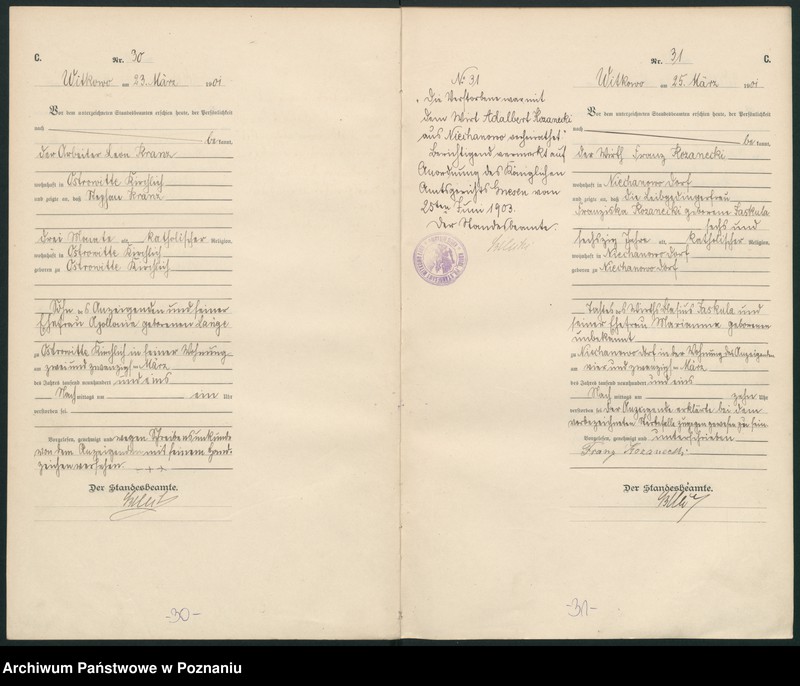 C.
Nr. 30
Witkowo am 23. März 1901
Vor dem unterzeichneten Standesbeamten erschien heute, der Persönlichkeit
nach
be kannt,
der Arbeiter Leon Kranz
wohnhaft in Ostrowitte Kirchlich
und zeigte an, daß Stephan Kranz
drei Monate alt, katholischer Religion,
wohnhaft in Ostrowitte Kirchlich
geboren zu Ostrowitte Kirchlich
Sohn des Anzeigenden und seiner
Ehefrau Apollonia geborenen Lange
zu Ostrowitte Kirchlich in seiner Wohnung
am zwei und zwanzigsten März
des Jahres tausend neunhundert und eins
Nach mittags um ein Uhr
verstorben sei.
Vorgelesen, genehmigt und wegen Schreibensunkunde
von dem Anzeigenden mit seinem Hand-
zeichen versehen +++
Der Standesbeamte.
-30-
No 31
"Die Verstorbene war mit
dem Wirt Adalbert Kozanecki
aus Niechanowo verheirathet"
Berichtigend vermerkt auf
Anordnung des Königlichen
Amtsgerichts Gnesen vom
25ten Juni 1903.
Der Standesbeamte.
Nr. 31
C.
Witkowo am 25. März 1901
Vor dem unterzeichneten Standesbeamten erschien heute, der Persönlichkeit
nach
be kannt,
der Wirth Franz Kozanecki
wohnhaft in Niechanowo Dorf
und zeigte an, daß die Leibgedingerfrau
Franziska Kozanecki geborene Laskula
sechs und
sechszig Jahre alt, katholischer Religion,
wohnhaft in Niechanowo Dorf
geboren zu Niechanowo Dorf
Tochter des Wirths Blasius Laskula und
seiner Ehefrau Marianna geborenen
unbekannt
zu Niechanowo Dorf in der Wohnung des Anzeigenden
am vier und zwanzigsten März
des Jahres tausend neunhundert und eins
Nach mittags um zehn Uhr
verstorben sei. Der Anzeigende erklärte bei dem
vorbezeichneten Sterbefalle zugegen gewesen zu sein.
Vorgelesen, genehmigt und unterschrieben
Franz Kozanecki
Der Standesbeamte.
-31-
Archiwum Państwowe w Poznaniu